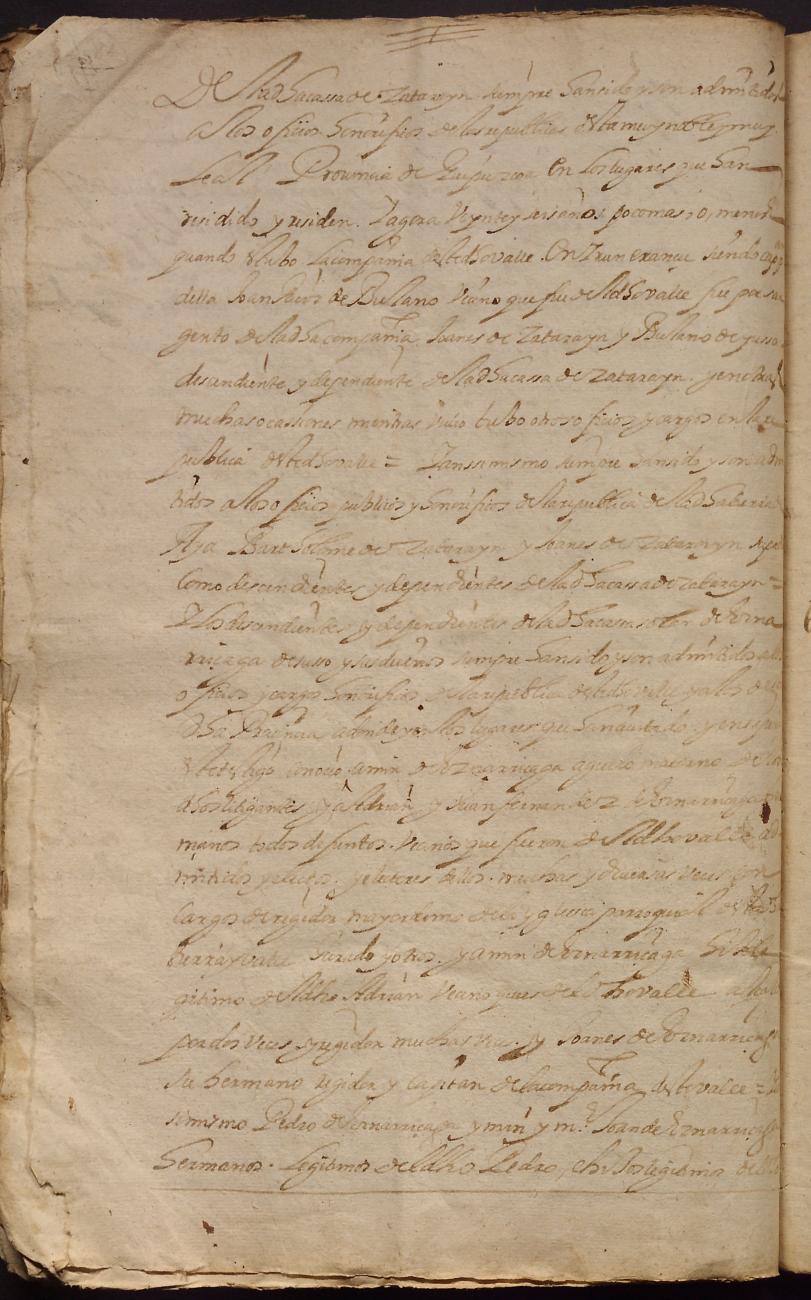 De la dha cassa de Zatarayn siempre han sido y son admitidos
a los officios honorificos de las republicas desta muy noble y muy
Leal Provincia de Guipuzcoa en los lugares que han
residido y residen. Y agora veynte y seis años poco mas, o, menos
quando estubo la compañia deste dho valle en Irun erançu siendo
della Joan Perez de Bulano vecino que fue del dho valle fue por sar
gento de la dha compañia Joanes de Zatarayn y Bulano de yusso
descendiente y dependiente de la dha cassa de Zatarayn. y en otras
muchas ocassiones mientras vivio tubo otros officios y cargos en la re
publica deste dho valle = Y anssimismo siempre han sido y son admi
tidos a los officios publicos y honorificos de la republica de la dha
Aya Bartholome de Zatarayn y Joanes de Zatarayn
Como descendientes y dependientes de la dha cassa de Zatarayn =
Y los descendientes y dependientes de la dha cassa solar de Erna
rriçaga de susso y sus dueños siempre han sido y son admitidos a los
officios y cargos honorificos de la republica deste dho valle y a los de
dha Provincia adonde y en los lugares que han
este testigo conocio a min de Hernarriçaga aguelo materno de los
dhos litigantes y a Adrian y Juan fernandez de Ernarriçaga
manos todos difuntos. vecinos que fueron del dho valle ad
mitidos y electos. y electores dellos. muchas y diversas veces con
Cargos de regidor mayordomo de la yglesia parroquial de
tierra y valle Jurado y otros. y a min de Ernarriçaga hijo le
gitimo del dho Adrian vecino que es del dho valle
por dos veces y regidor muchas veces. y Joanes de Ernarriçaga
su hermano regidor y capitan de la compañia deste valle =
simismo Pedro de Hernarriçaga y min y m.º Joan de Ernarriçaga
hermanos. Legitimos del dho Pedro, e hijos legitimos